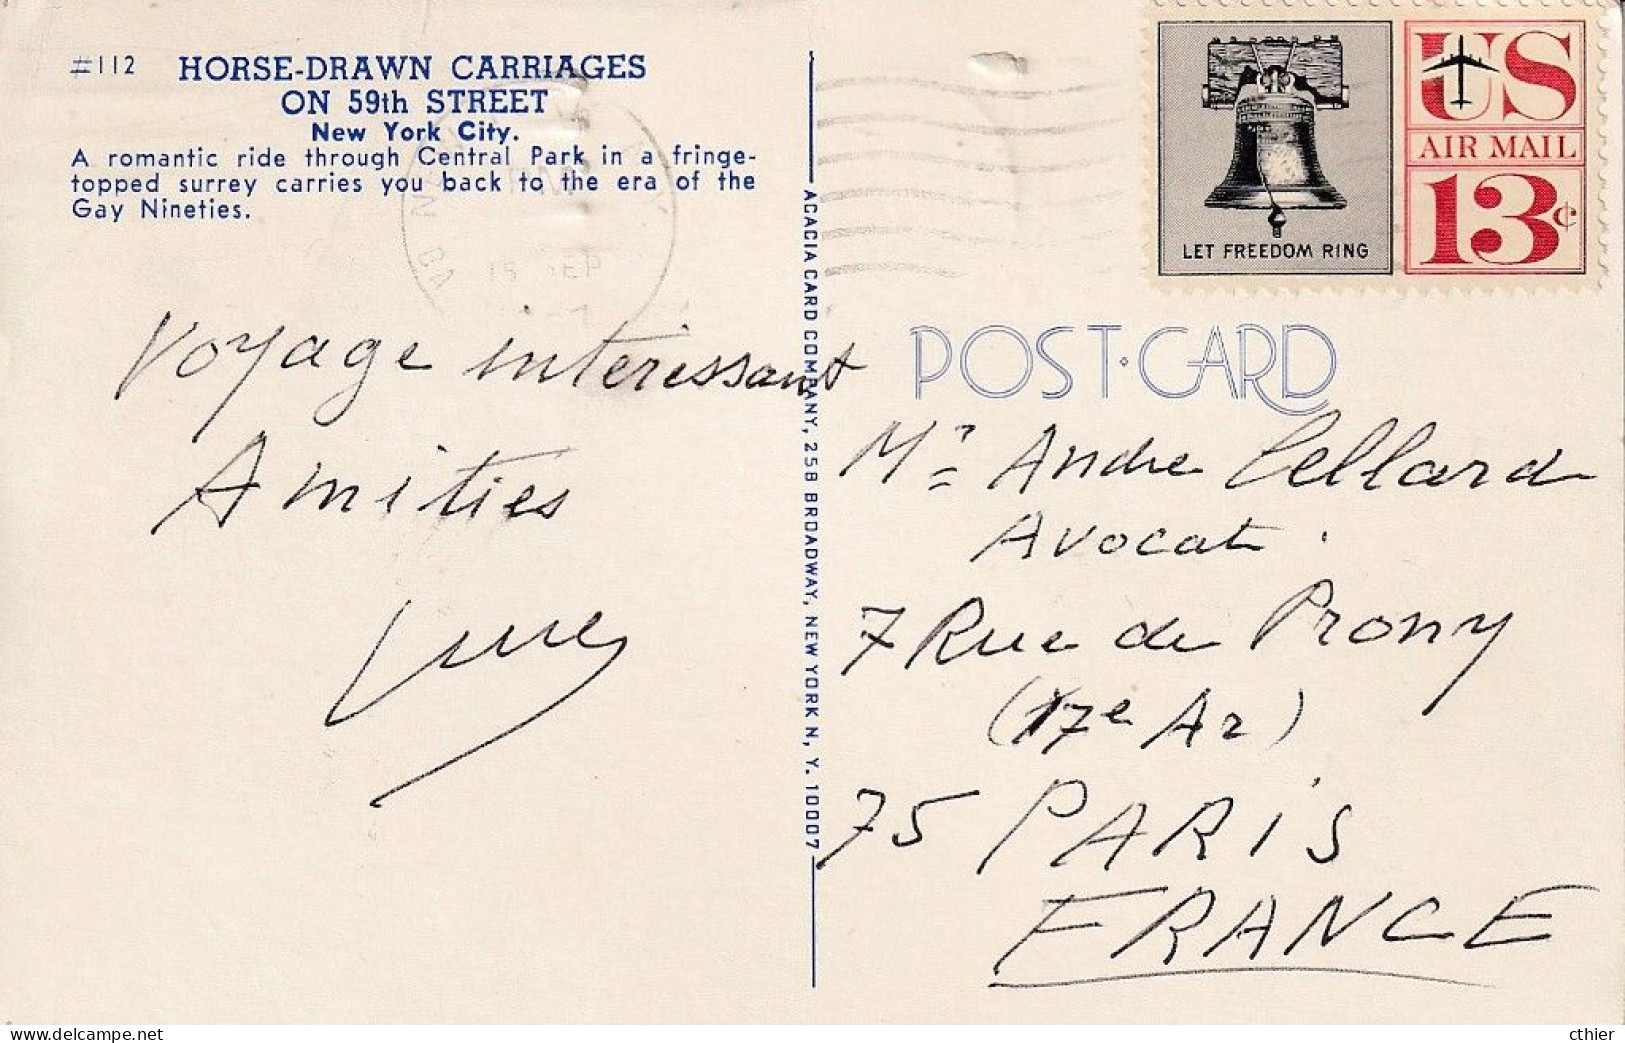 #112 HORSE-DRAWN CARRIAGES
ON 59th STREET
New York City.
A romantic ride through Central Park in a fringe-
topped surrey carries you back to the era of the
Gay Nineties.
Voyage interessant
Amities
ACACIA CARD COMPANY, 258 BROADWAY, NEW YORK N, Y. 10007
US
AIR MAIL
13¢
LET FREEDOM RING
POST·CARD
Mr Andre Cellard
Avocat.
7 Rue de Prony
(17e Ar)
75 PARIS
FRANCE
Delcampe.net
cthier